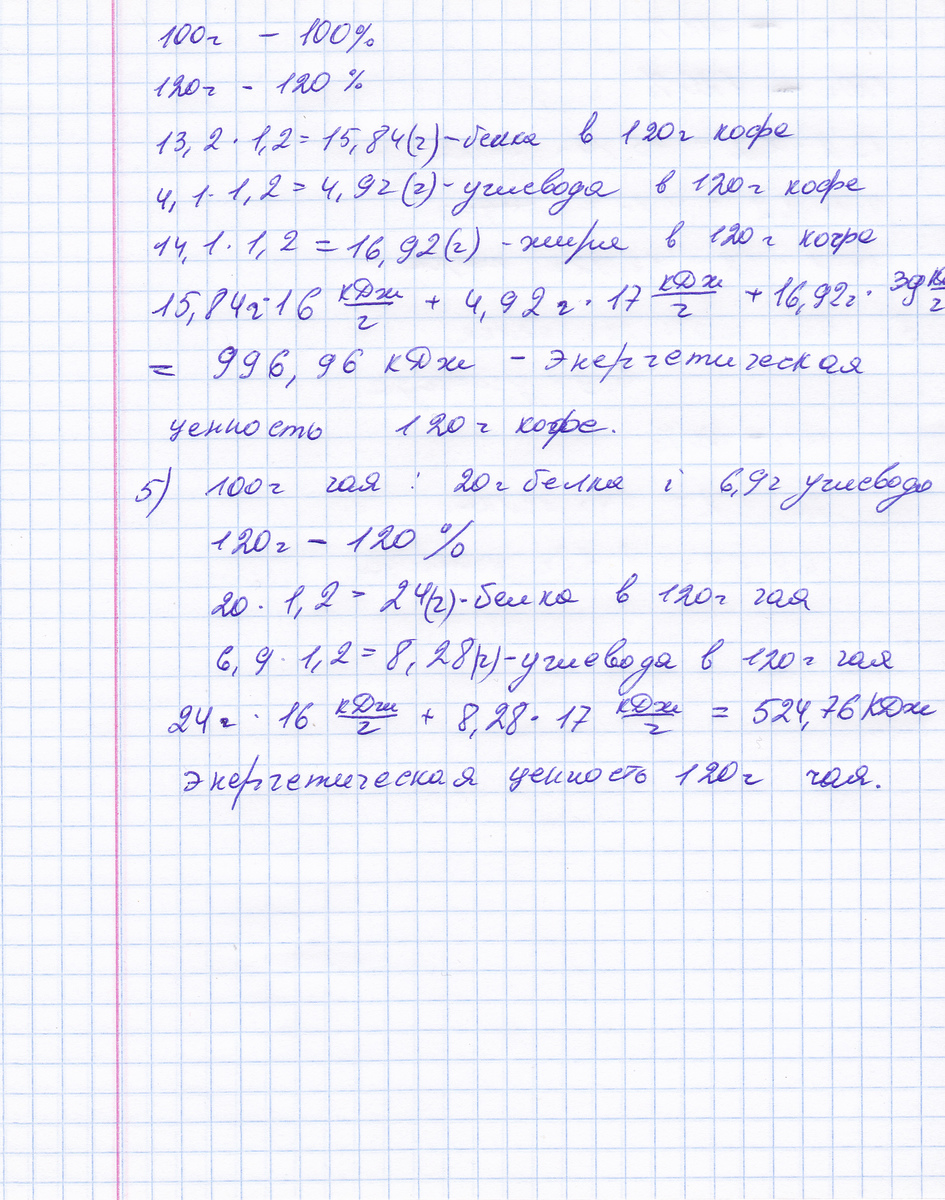 100г – 100%
120г - 120 %
13,2 · 1,2 = 15,84(г)-белка в 120г кофе
4,1 · 1,2 = 4,92(г)-углевода в 120г кофе
14,1 · 1,2 = 16,92(г) -жира в 120г кофе
15,84г·16 кДж/г + 4,92 г · 17 кДж/г + 16,92г ·
= 996,96 кДж – энергетическая
ценность 120г кофе.
5) 100г чая : 20г белка і 6,9г углевода
120г – 120 %
20 · 1,2 = 24(г)-белка в 120г чая
6,9 · 1,2 = 8,28(г)-углевода в 120г чая
24г · 16 кДж/г + 8,28 · 17 кДж/г = 524,76 КДж
энергетическая ценность 120г чая.